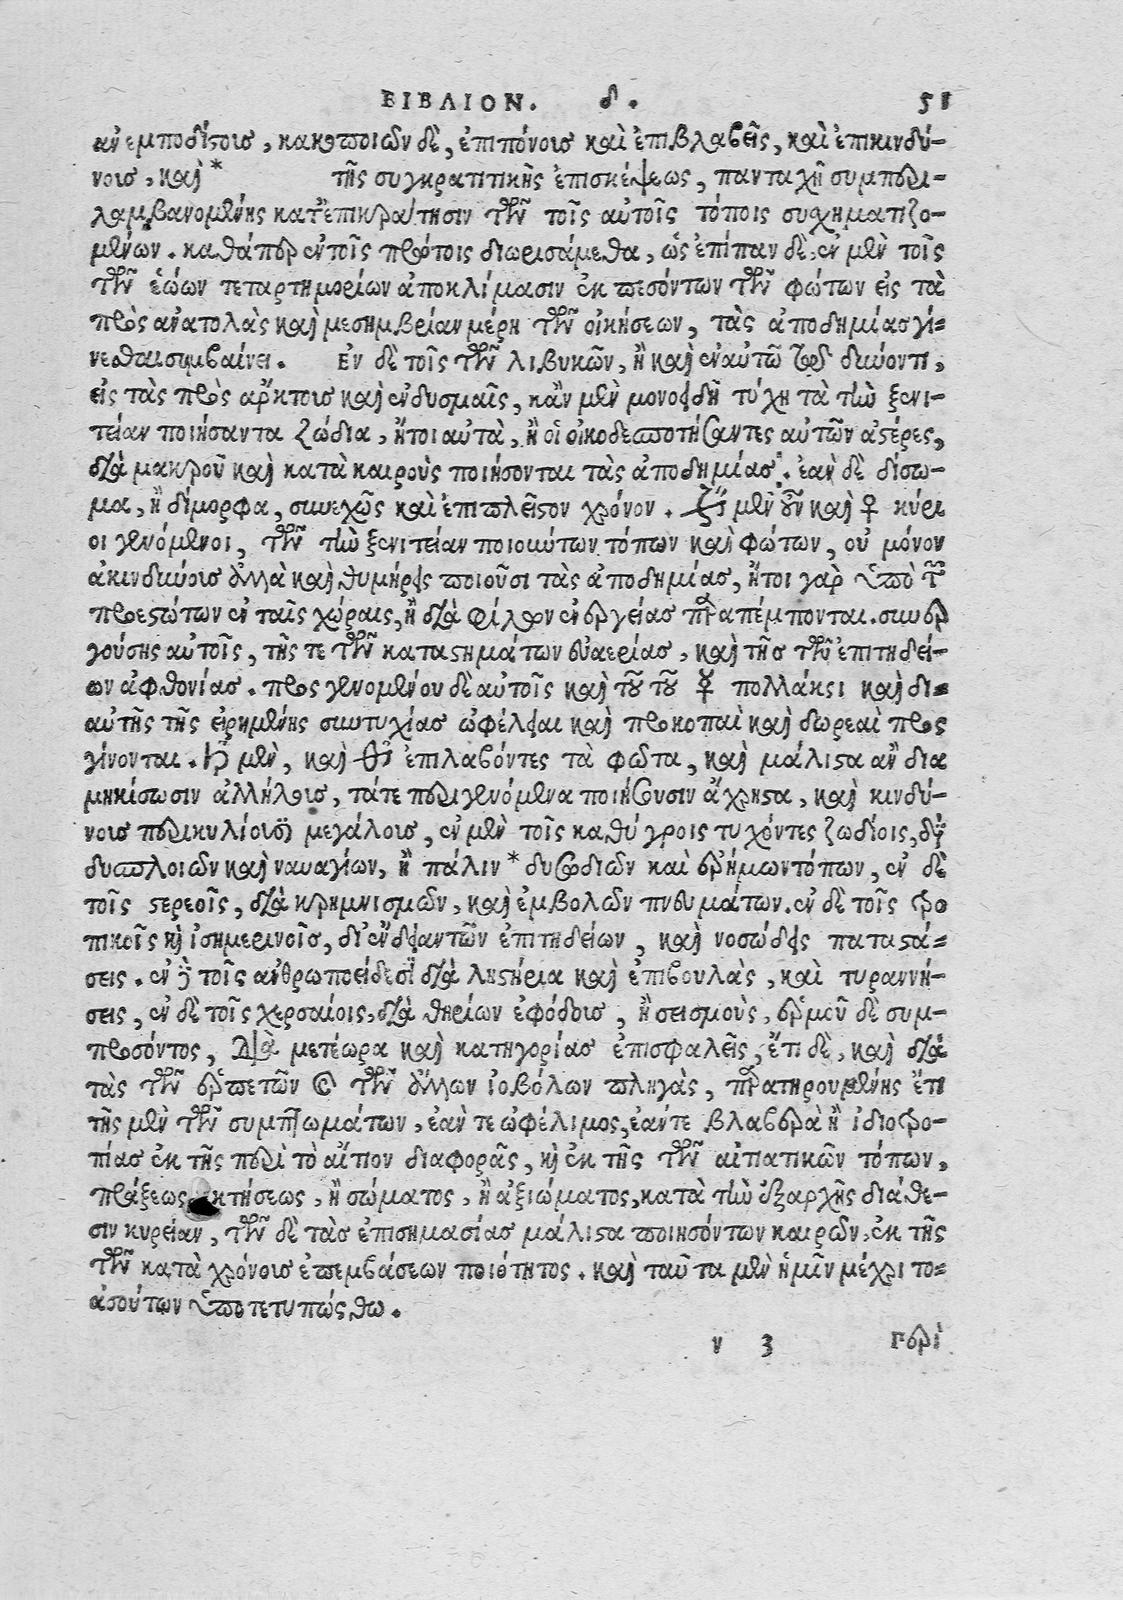 ΒΙΒΛΙΟΝ. δ. 51
ἀνεμποδίστοις, κακοποιῶν δὲ, ἐπιπόνοις καὶ ἐπιβλαβεῖς, καὶ ἐπικινδύ-
νοις, καὶ * τῆς συγκρατιτικῆς ἐπισκέψεως, πανταχῆ συμπερι-
λαμβανομένης κατ' ἐπικράτησιν τῶν τοῖς αὐτοῖς τόποις συχηματιζο-
μένων. καθάπερ ἐν τοῖς πρότοις διωρισάμεθα, ὡς ἐπίπαν δὲ, ἐν μὲν τοῖς
τῶν ἑώων τεταρτημορίων ἀποκλίμασιν ἐκπεσόντων τῶν φώτων εἰς τὰ
πρὸς ἀνατολὰς καὶ μεσημβρίαν μέρη τῶν οἰκήσεων, τὰς ἀποδημίας γί-
νεσθαι συμβαίνει. Εν δὲ τοῖς τῶν λιβυκῶν, ἢ καὶ ἐν αὐτῶ τῶ δύνοντι,
εἰς τὰς πρὸς ἄρκτους καὶ ἐν δυσμαῖς, κἂν μὲν μονοειδῆ τύχη τὰ τὴν ξενι-
τείαν ποιήσαντα ζώδια, ἤτοι αὐτὰ, ἢ οἱ οἰκοδεσποτήσαντες αὐτῶν ἀστέρες,
διὰ μακροῦ καὶ κατὰ καιροὺς ποιήσονται τὰς ἀποδημίας. ἐὰν δὲ δίσω-
μα, ἢ δίμορφα, συνεχῶς καὶ ἐπιπλεῖστον χρόνον. ♃ μὲν οὖν καὶ ♀ κύρι
οι γενόμενοι, τῶν τὴν ξενιτείαν ποιούντων τόπων καὶ φώτων, οὐ μόνον
ἀκινδύνους ἀλλὰ καὶ θυμήρεις ποιοῦσι τὰς ἀποδημίας, ἤτοι γὰρ ὑπὸ τῶν
προεστώτων ἐν ταῖς χώραις, ἢ διὰ φίλων ἐνεργείας παραπέμπονται. συνερ
γούσης αὐτοῖς, τῆς τε τῶν καταστημάτων εὐαερίας, καὶ τῆς τῶν ἐπιτηδεί-
ων ἀφθονίας. προσγενομένου δὲ αὐτοῖς καὶ τοῦ τοῦ ☿ πολλάκις καὶ δι-
αὐτῆς τῆς εἰρημένης συντυχίας ὠφέλειαι καὶ προκοπαὶ καὶ δωρεαὶ προς
γίνονται. ♄ μὲν, καὶ ♂ ἐπιλαβόντες τὰ φῶτα, καὶ μάλιστα ἂν δια
μηκίσωσιν ἀλλήλους, τά τε περιγενόμενα ποιήσουσιν ἄχρηστα, καὶ κινδύ-
νοις περικυλίουσι μεγάλοις, ἐν μὲν τοῖς καθύγροις τυχόντες ζωδίοις, διὰ
δυσπλοιῶν καὶ ναυαγίων, ἢ πάλιν * δυσοδιῶν καὶ ἐρήμων τόπων, ἐν δὲ
τοῖς στερεοῖς, διὰ κρημνισμῶν, καὶ ἐμβολῶν πνευμάτων. ἐν δὲ τοῖς τρο
πικοῖς καὶ ἰσημερινοῖς, δι' ἔνδειαν τῶν ἐπιτηδείων, καὶ νοσώδεις καταστά-
σεις. ἐν δὲ τοῖς ἀνθρωποείδεσι διὰ λῃστήρια καὶ ἐπιβουλὰς, καὶ τυραννή-
σεις, ἐν δὲ τοῖς χερσαίοις, διὰ θηρίων ἐφόδους, ἢ σεισμοὺς, ἑρμοῦ δὲ συμ-
προσόντος, Διὰ μετέωρα καὶ κατηγορίας ἐπισφαλεῖς, ἔτι δὲ, καὶ διὰ
τὰς τῶν ἑρπετῶν καὶ τῶν ἄλλων ἰοβόλων πληγὰς, παρατηρουμένης ἔτι
τῆς μὲν τῶν συμπτωμάτων, ἐάν τε ὠφέλιμος, ἐάν τε βλαβερὰ ἢ ἰδιοτρο-
πίας ἐκ τῆς περὶ τὸ αἴτιον διαφορᾶς, καὶ ἐκ τῆς τῶν αἰτιατικῶν τόπων,
πράξεως κτήσεως, ἢ σώματος, ἢ ἀξιώματος, κατὰ τὴν ἐξαρχῆς διάθε-
σιν κυρείαν, τῶν δὲ τὰς ἐπισημασίας μάλιστα ποιησόντων καιρῶν, ἐκ τῆς
τῶν κατὰ χρόνους ἐπεμβάσεων ποιότητος. καὶ ταῦτα μὲν ἡμῖν μέχρι το-
ἀσούτων ὑποτετυπώσθω.
ν 3 Περὶ